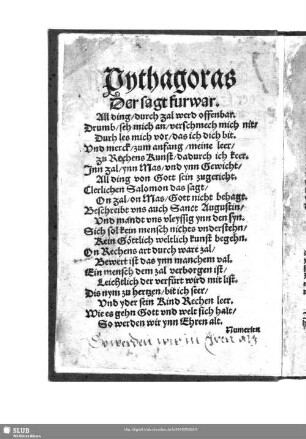 Pythagoras
Der sagt furwar.
All ding/durch zal werd offenbar.
Drumb/seh mich an/verschmech mich nit/
Durh les mich vor/das ich dich bit.
Vnd merck/zum anfang/meine leer/
zu Rechens Kunst/dadurch ich keer.
Inn zal/ynn Mas/vnd ynn Gewicht/
All ding von Gott sein zugericht.
Clerlichen Salomon das sagt/
On zal/on Mas/Gott nicht behagt.
Beschreibt vns auch Sanct Augustin/
Vnd mandt vns vleyssig ynn den syn.
Sich sol kein mensch nichts vnderstehn/
Kein Götlich weltlich kunst begehn.
On Rechens art durch ware zal/
Bewert ist das ynn manchem val.
Ein mensch dem zal verborgen ist/
Leichtlich der verfürt wird mit list.
Dis nym zu hertzen/bit ich seer/
Vnd yder sein Kind Rechen leer.
Wie es gehn Gott vnd welt sich halt/
So werden wir ynn Ehren alt.
Numeriren
So werden wir in Iren alt
SLUB